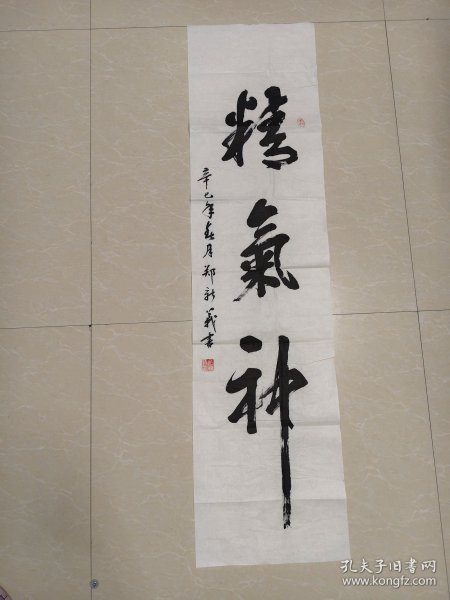 精氣神
辛巳年春月郑新義書
孔夫子旧书网
www.kongfz.com